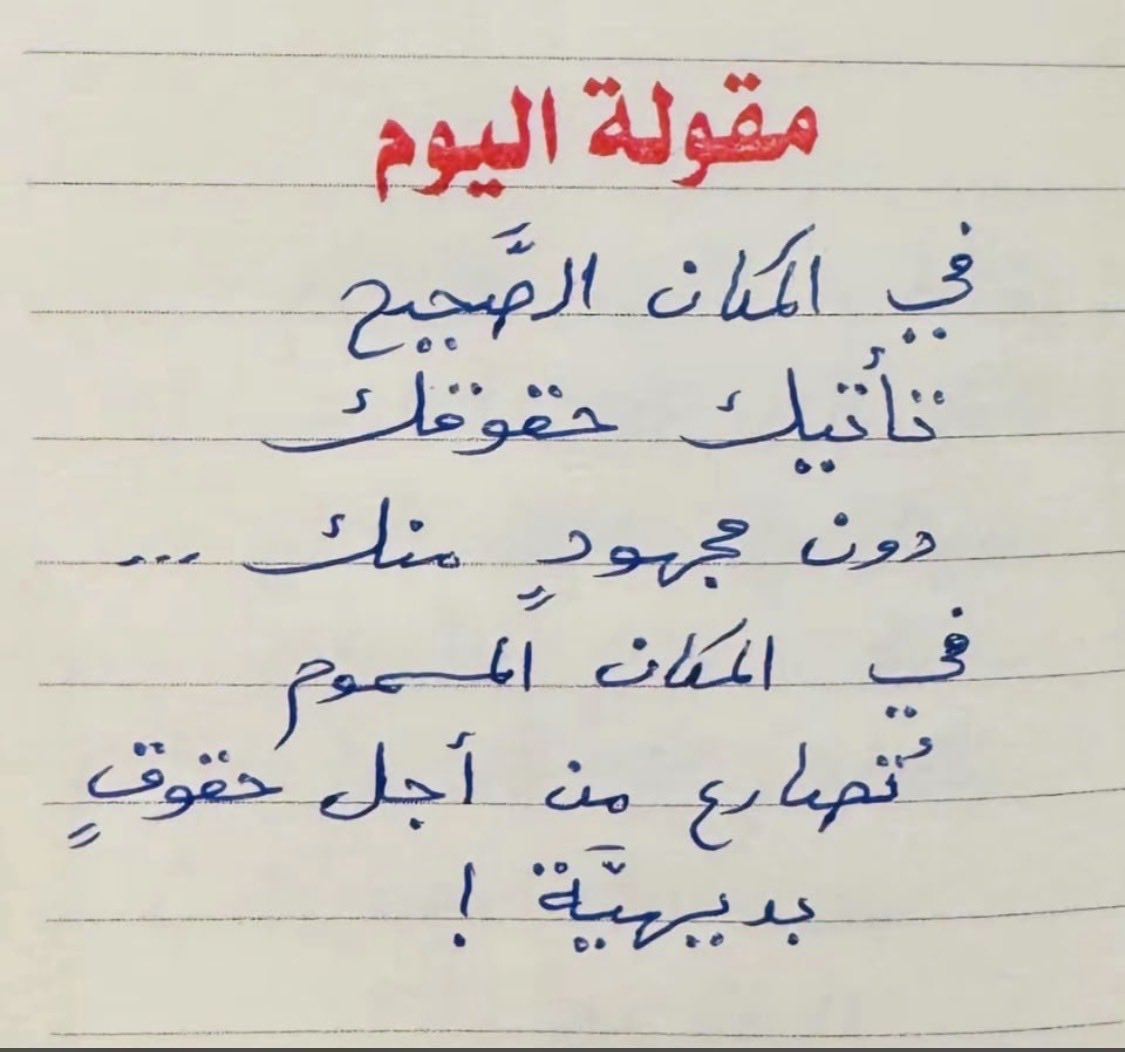 مقولة اليوم
في المكان الصَّحيح
تأتيك حقوقك
دون مجهودٍ منك ...
في المكان المسموم
تُصارع من أجل حقوقٍ
بديهيَّة !